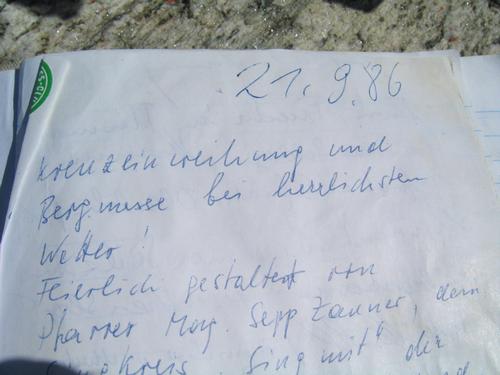 21.9.86
Kreuzeinweihung und
Bergmesse bei herrlichstem
Wetter!
Feierlich gestaltet von
Pfarrer Mag. Sepp Zauner, dem
Singkreis „Sing mit" der